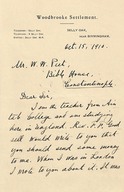 Woodbrooke Settlement.
SELLY OAK,
NEAR BIRMINGHAM.
Oct. 15. 1910.
Mr. W. W. Peet,
Bible House,
Constantinople
Dear Sir,
I am the teacher from Ain-
tab College and am studying
here in England.
would write to you that
you should send some money
to me. When I was in London
I wrote to you about it. I was